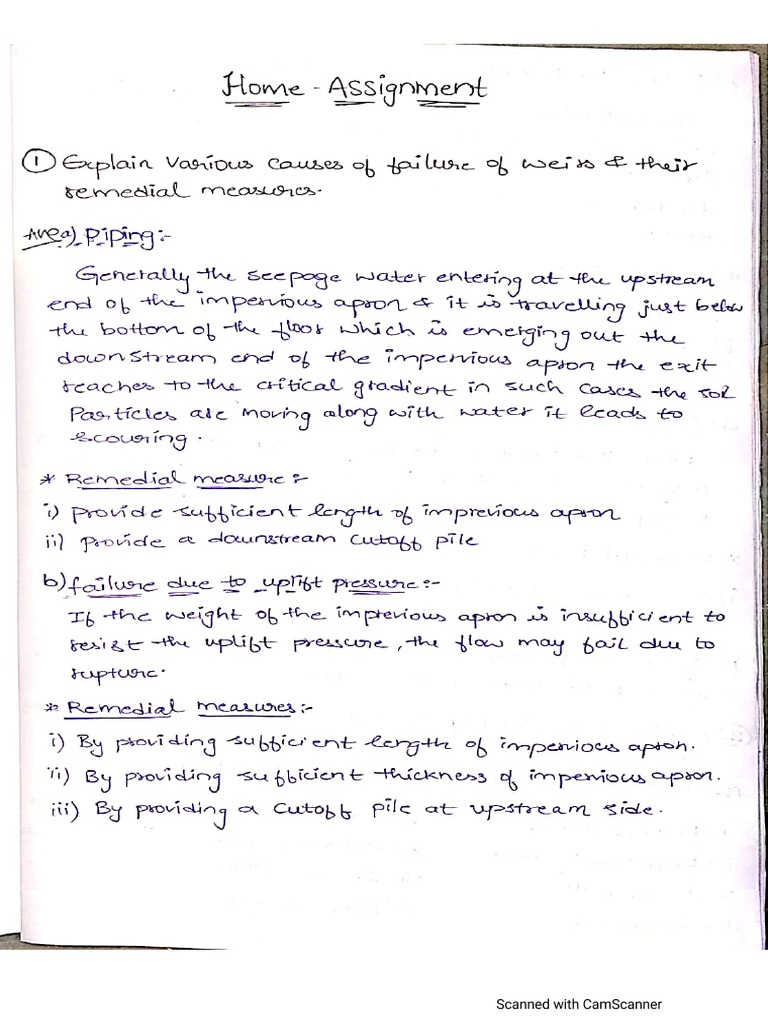 Home - Assignment
① Explain various causes of failure of weirs & their
remedial measures.
Ans a) Piping:-
Generally the seepage water entering at the upstream
end of the impervious apron & it is travelling just below
the bottom of the floor which is emerging out the
downstream end of the impervious apron the exit
reaches to the critical gradient in such cases the soil
Particles are moving along with water it leads to
scouring.
* Remedial measure:-
i) provide sufficient length of imprevious apron
ii) provide a downstream cutoff pile
b) failure due to uplift pressure:-
If the weight of the imprevious apron is insufficient to
resist the uplift pressure, the flow may fail due to
rupture.
* Remedial measures:-
i) By providing sufficient length of impervious apron.
ii) By providing sufficient thickness of impervious apron.
iii) By providing a cutoff pile at upstream side.
Scanned with CamScanner